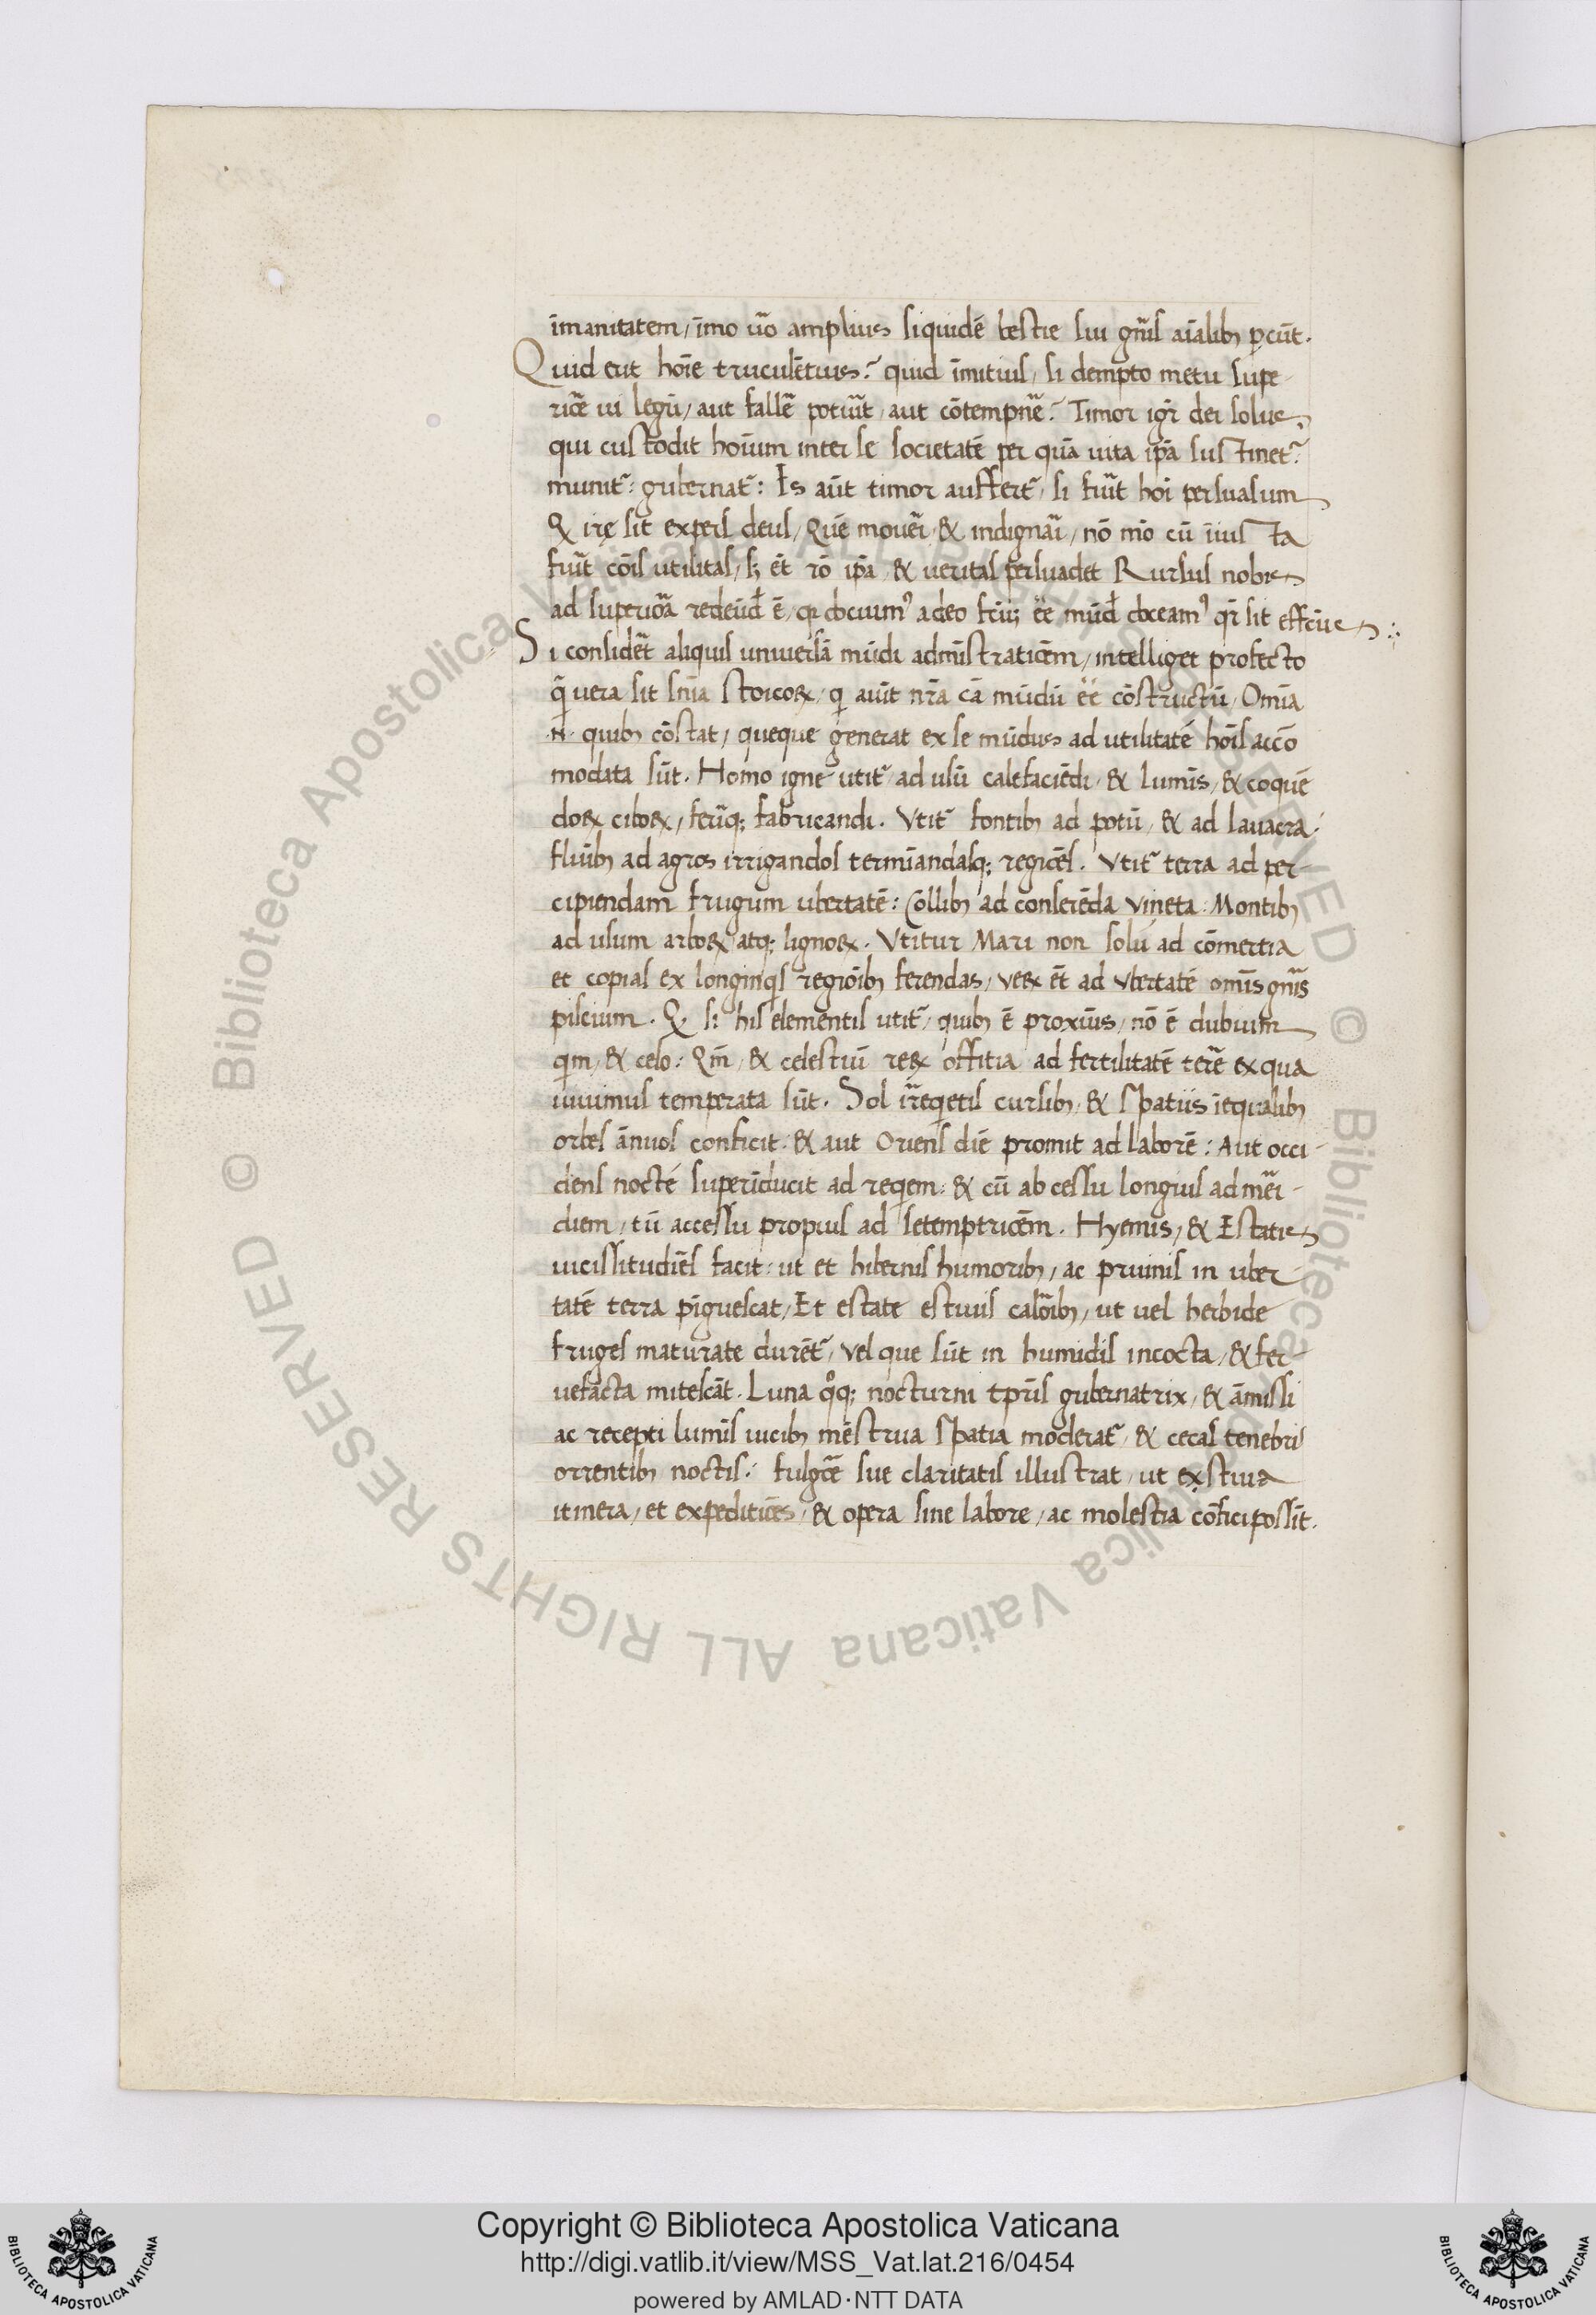 īmanitatem, īmo ūo amplius siquidē bestie sui gñis aīalib; ꝑcūt.
Quid erit hoīe truculētius? quid īmitius, si dempto metu supe-
rioē ui legū, aut fallē potiūt, aut cōtempnē? Timor igr̄ dei solus
qui custodit hoīum inter se societatē per quā uita ip̄a sustinet̄.
munit̄: gubernat̄: Is aūt timor auffert̄, si fūit hoī persuasum
Q irę sit expers deus, Quē mouēi & indignāi, nō mō cū īiusta
fūit cōis utilitas, s; ēt rō ip̄a & ueritas persuadet Rursus nobis
ad superiōa redeūd̄ ē, qr̄ docuim᾿ a deo fc̄ū; ēē mūd̄ doceam᾿ qr̄ sit effcūs
Si considēt aliquis uniuersā mūdi admīstratiōem, intelliget profecto
q̄ uera sit sn̄ia Stoicoꝝ, qi aiūt nr̄a cā mūdū ēē cōstructū, Omīa
.n. quib; cōstat, queque generat ex se mūdus ad utilitatē hoīs accō
modata sūt. Homo igne utit̄ ad usū calefaciēdi, & lumīs, & coquē
doꝝ ciboꝝ, ferīq; fabricandi. Vtit̄ fontib; ad potū, & ad lauacra.
fluīib; ad agros irrigandos termīandasq; regiōes. Vtit̄ terra ad per-
cipiendam frugum ubertatē: Collib; ad conserēda Vineta: Montib;
ad usum arboꝝ atq; lignoꝝ. Vtitur Mari non solū ad cōmertia
et copias ex longinqis regiōib; ferendas, ueꝝ ēt ad Vbertatē omīs gñis
piscium. Q si his elementis utit̄, quib; ē proxīus, nō ē dubium
qin, & celo: Qm̄, & celestiū reꝝ offitia ad fertilitatē terē ex qua
uiuimus temperata sūt. Sol īreqietis cursib; & spatiis īequalib;
orbes ānuos conficit: & aut Oriens diē promit ad laborē: Aut occi-
dens noctē superīducit ad reqiem: & cū abcessu longius ad mēi-
diem, tū accessu propius ad setemptriōem. Hyemis, & Estatis
uicissitudiēs facit: ut et hibernis humorib; ac pruinis in uber-
tatē terra pīguescat, Et estate estiuis calōib;, ut uel herbide
fruges maturate durēt̄, Vel que sūt in humidis incocta, & fer-
uefacta mitescāt. Luna qoq; nocturni tp̄ris gubernatrix, & āmissi
ac recepti lumīs uicib; mēstrua spatia moderat̄, & cecas tenebris
orrentib; noctis: fulgoē sue claritatis illustrat, ut exstiua
itinera, et expeditiōes, & opera sine labore, ac molestia cōfici possīt.
Copyright © Biblioteca Apostolica Vaticana
http://digi.vatlib.it/view/MSS_Vat.lat.216/0454
powered by AMLAD·NTT DATA
BIBLIOTECA APOSTOLICA VATICANA
BIBLIOTECA APOSTOLICA VATICANA
© Biblioteca Apostolica Vaticana ALL RIGHTS RESERVED © Biblioteca Apostolica Vaticana ALL RIGHTS RESERVED